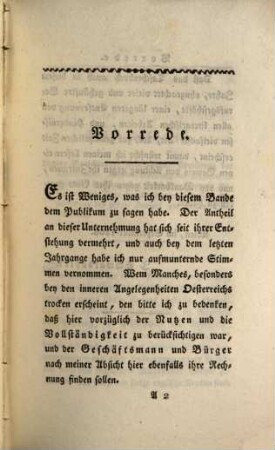 Vorrede.
Es ist Weniges, was ich bey diesem Bande
dem Publikum zu sagen habe. Der Antheil
an dieser Unternehmung hat sich seit ihrer Ent-
stehung vermehrt, und auch bey dem letzten
Jahrgange habe ich nur aufmunternde Stim-
men vernommen. Wem Manches, besonders
bey den inneren Angelegenheiten Oesterreichs
trocken erscheint, den bitte ich zu bedenken,
daß hier vorzüglich der Nutzen und die
Vollständigkeit zu berücksichtigen war,
und der Geschäftsmann und Bürger
nach meiner Absicht hier ebenfalls ihre Rech-
nung finden sollen.
A 2